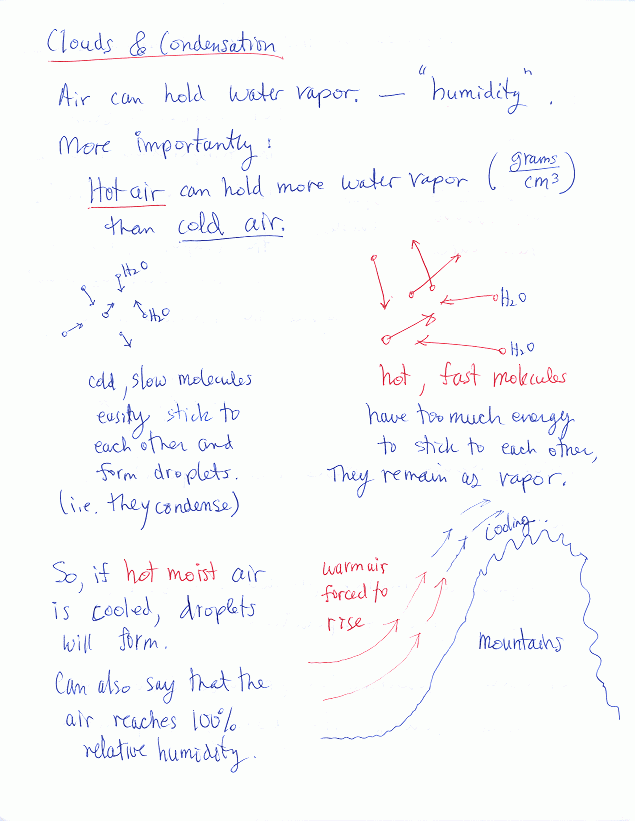 Clouds & Condensation
Air can hold water vapor. — "humidity".
More importantly:
Hot air can hold more water vapor (grams/cm³)
than cold air.
H₂O
H₂O
cold, slow molecules
easily stick to
each other and
form droplets.
(i.e. they condense)
H₂O
H₂O
hot, fast molecules
have too much energy
to stick to each other,
They remain as vapor.
So, if hot moist air
is cooled, droplets
will form.
Can also say that the
air reaches 100%
relative humidity.
cooling
warm air
forced to
rise
mountains